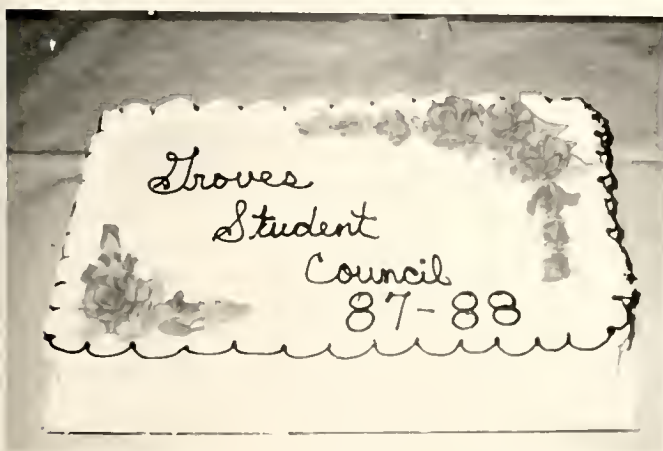 Groves
Student
Council
87-88